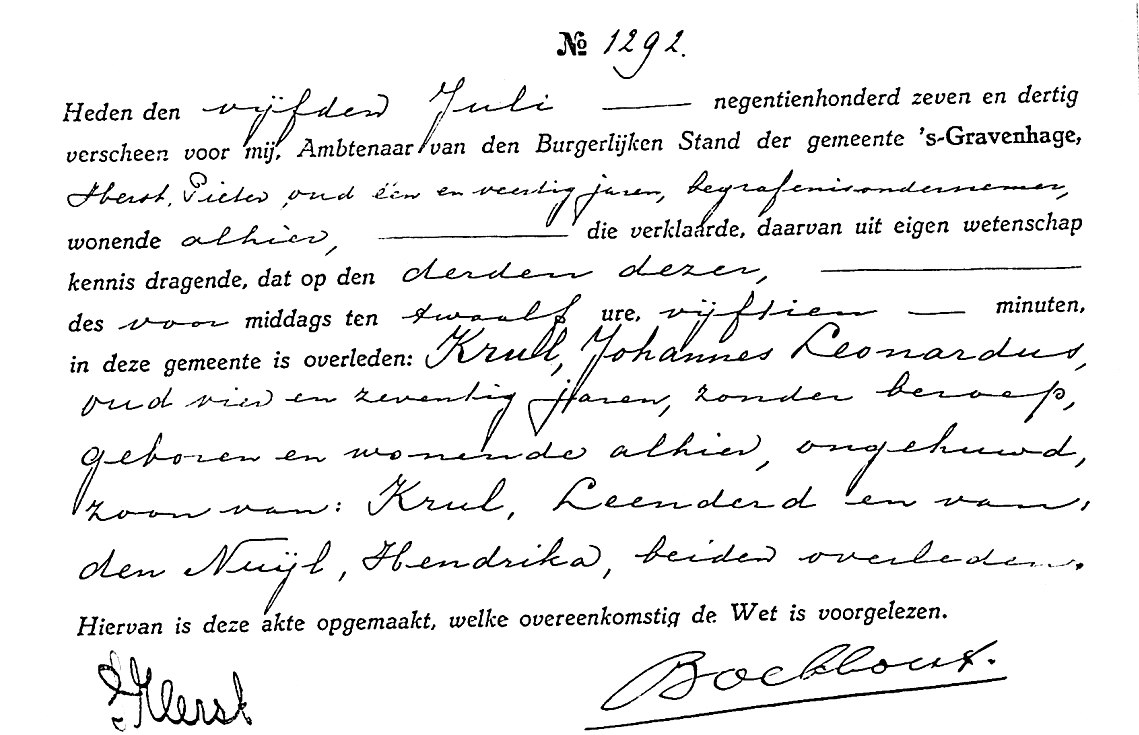 № 1292.
Heden den vijfden Juli — negentienhonderd zeven en dertig
verscheen voor mij, Ambtenaar van den Burgerlijken Stand der gemeente 's-Gravenhage,
Herst, Pieter, oud één en veertig jaren, begrafenisondernemer,
wonende alhier, — die verklaarde, daarvan uit eigen wetenschap
kennis dragende, dat op den derden dezer, —
des voor middags ten twaalf ure, vijftien — minuten,
in deze gemeente is overleden: Krul, Johannes Leonardus,
oud vier en zeventig jaren, zonder beroep,
geboren en wonende alhier, ongehuwd,
zoon van: Krul, Leenderd en van
den Nuijl, Hendrika, beiden overleden.
Hiervan is deze akte opgemaakt, welke overeenkomstig de Wet is voorgelezen.
P Herst Bockhout.